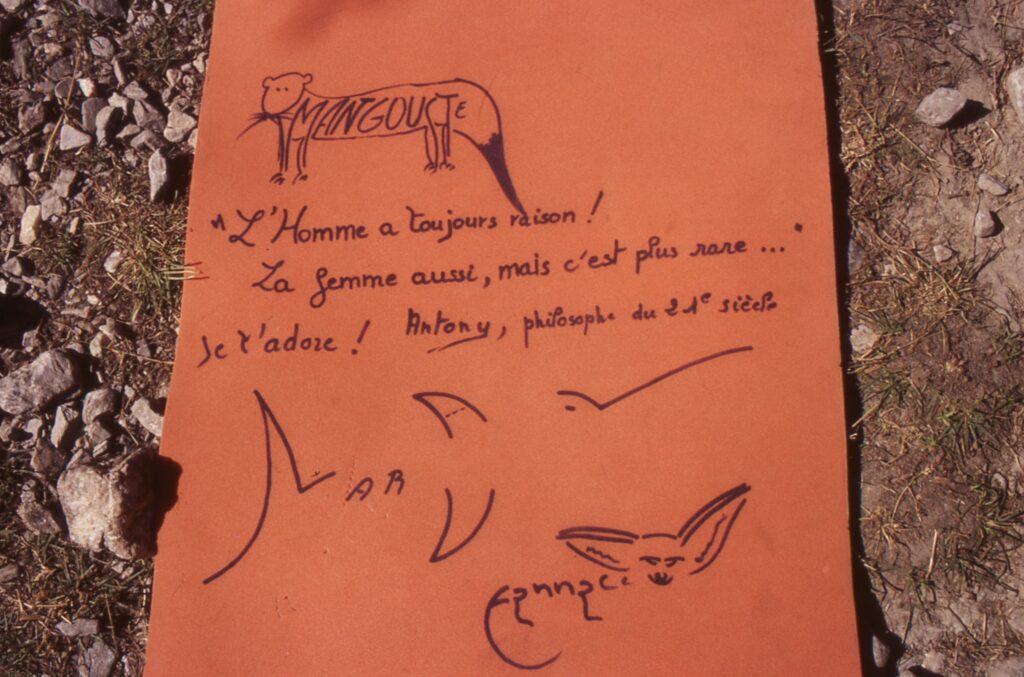 MANGOUSTE
"L'Homme a toujours raison !
La femme aussi, mais c'est plus rare ..."
Antony, philosophe du 21e siècle
Je t'adore !
AR